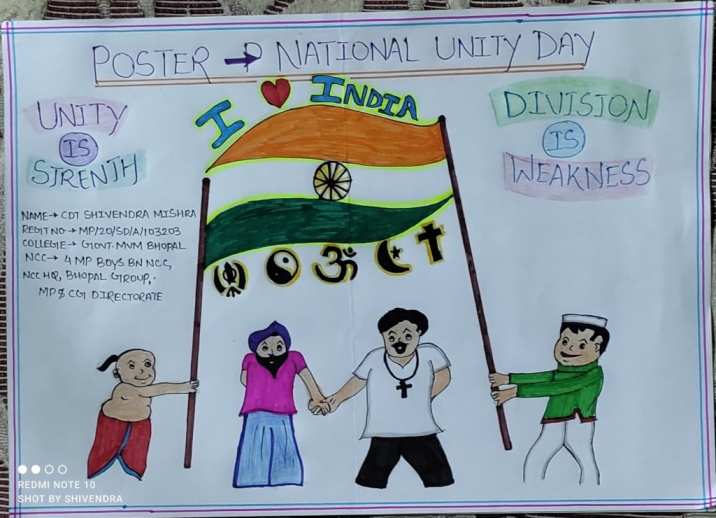 POSTER → P NATIONAL UNITY DAY
I ❤ INDIA
UNITY
IS
STRENTH
DIVISION
IS
WEAKNESS
NAME → CDT SHIVENDRA MISHRA
REGIT NO → MP/20/SD/A/103203
COLLEGIE → GIOVT. MVM BHOPAL
NCC → 4 MP BOYS BN NCC,
NCC HQ, BHOPAL GIROUP,
MP & CGI DIRECTORATE
ॐ
REDMI NOTE 10
SHOT BY SHIVENDRA